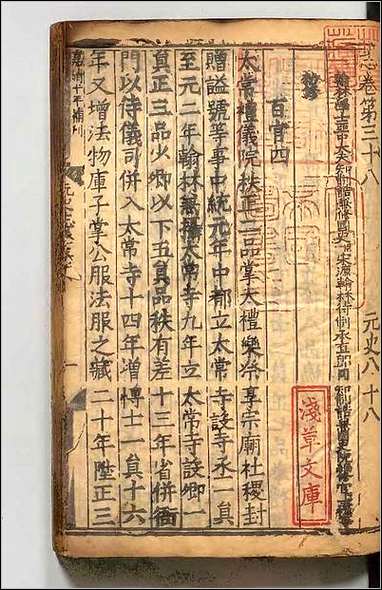 志卷第三十八
元史八十八
翰林學士亞中大夫知制誥兼修國史臣宋濂翰林待制承直郎同知制誥兼國史院編修官臣王禕奉
勅修
百官四
太常禮儀院秩正二品掌大禮樂祭享宗廟社稷封
贈謚號等事中統元年中都立太常寺設寺丞一員
至元二年翰林兼攝太常寺九年立太常寺設卿一
員正三品少卿以下五員品秩有差十三年省併衙
門以侍儀司併入太常寺十四年增博士一員十六
年又增法物庫子掌公服法服之藏二十年陞正三
嘉靖十年補刊
淺草文庫